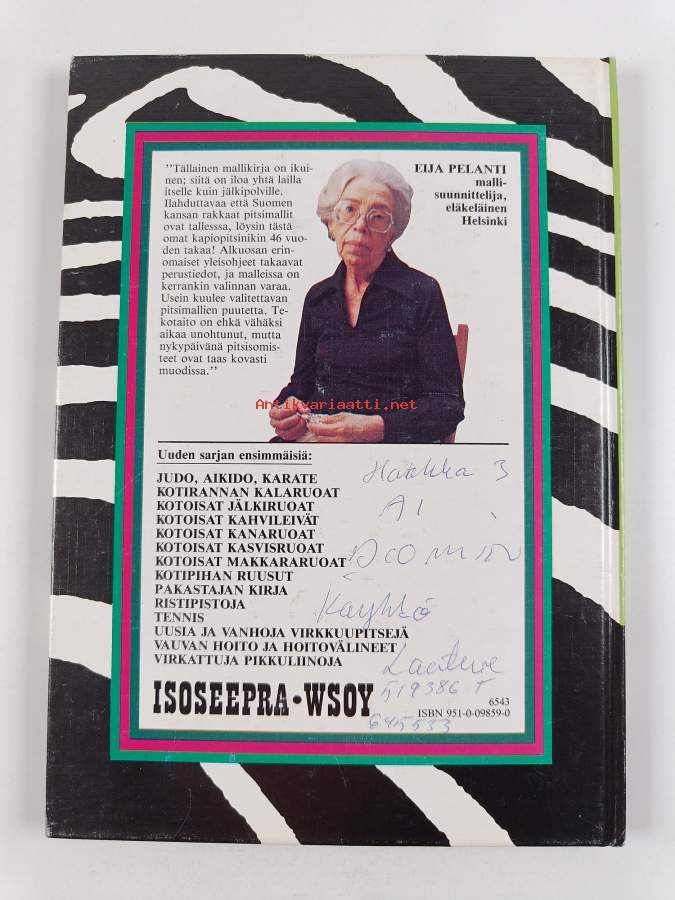 "Tällainen mallikirja on ikui-
nen; siitä on iloa yhtä lailla
itselle kuin jälkipolville.
Ilahduttavaa että Suomen
kansan rakkaat pitsimallit
ovat tallesssa, löysin tästä
omat kapiopitsinikin 46 vuo-
den takaa! Alkuosan erin-
omaiset yleisohjeet takaavat
perustiedot, ja malleissa on
kerrankin valinnan varaa.
Usein kuulee valitettavan
pitsimallien puutetta. Te-
kotaito on ehkä vähäksi
aikaa unohtunut, mutta
nykypäivänä pitsisomis-
teet ovat taas kovasti
muodissa."
EIJA PELANTI
malli-
suunnittelija,
eläkeläinen
Helsinki
Antikvariaatti.net
Uuden sarjan ensimmäisiä:
JUDO, AIKIDO, KARATE
KOTIRANNAN KALARUOAT
KOTOISAT JÄLKIRUOAT
KOTOISAT KAHVILEIVÄT
KOTOISAT KANARUOAT
KOTOISAT KASVISRUOAT
KOTOISAT MAKKARARUOAT
KOTIPIHAN RUUSUT
PAKASTAJAN KIRJA
RISTIPISTOJA
TENNIS
UUSIA JA VANHOJA VIRKKUUPITSEJÄ
VAUVAN HOITO JA HOITOVÄLINEET
VIRKATTUJA PIKKULIINOJA
ISOSEEPRA·WSOY
6543
ISBN 951-0-09859-0
3
A1
519386 T
645533